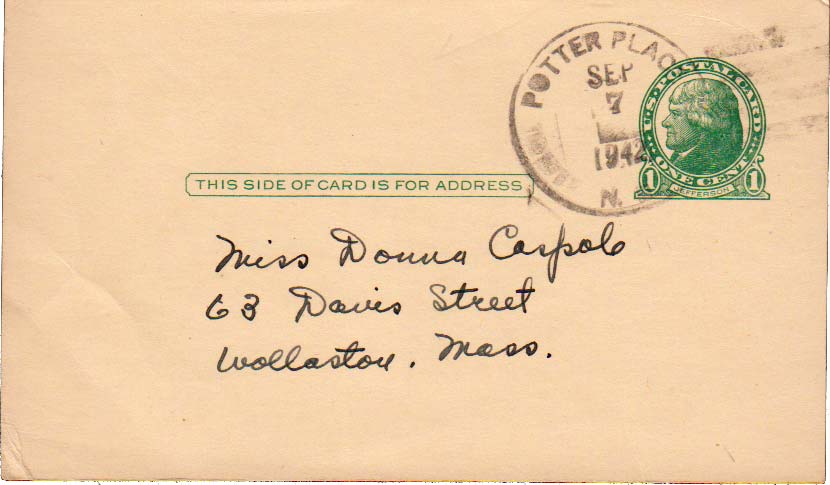 POTTER PLAC
SEP
7
1942
N.
U.S. POSTAL CARD
ONE CENT
1 JEFFERSON 1
THIS SIDE OF CARD IS FOR ADDRESS
Miss Donna Caspole
63 Davis Street
Wollaston. Mass.